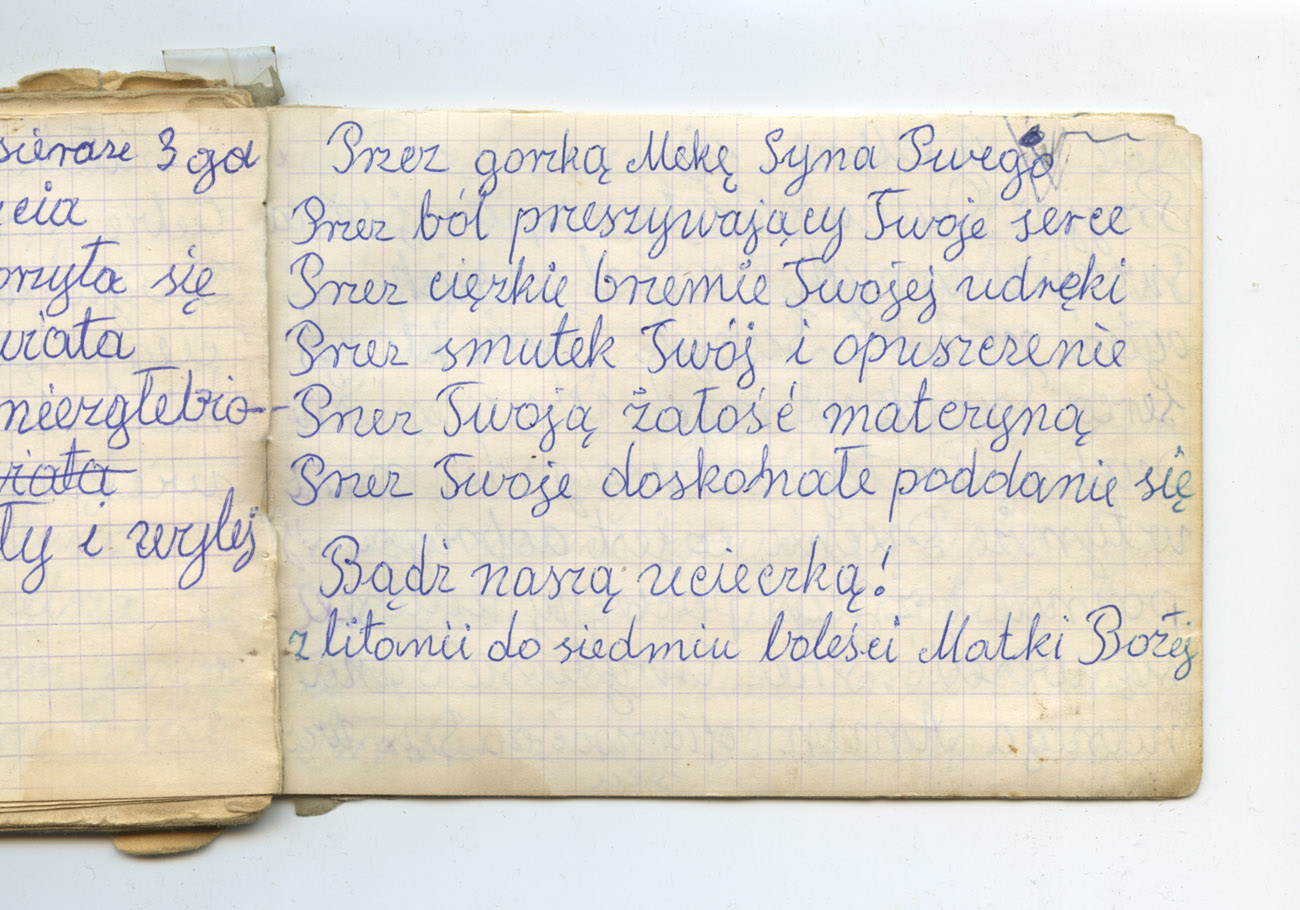 sieraze 3 god
cia
orzyła się
wiata
niezgłebio-
wiata
ły i wylej
Przez gorzką Mekę Syna Twego
Przez ból preszywający Twoje serce
Przez ciężkie brzemie Twojej udręki
Przez smutek Twój i opuszczenie
Przez Twoją żałość materyną
Przez Twoje doskonałe poddanie się
Bądź naszą ucieczką!
z litanii do siedmiu boleści Matki Bożej